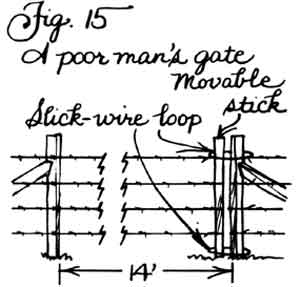 Fig. 15
A poor man's gate
Movable
stick
Slick-wire loop
14'